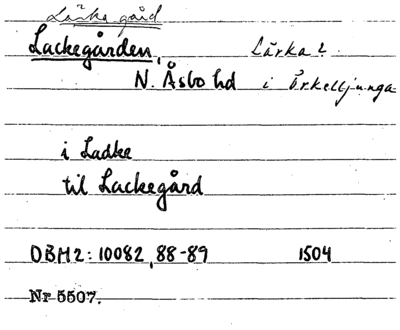 Lärkegård
Lackegården, Lärka 2.
N. Åsbo hd i Örkelljunga
i Ladke
til Lackegård
DBH2: 10082, 88-89 1504
Nr 5507.